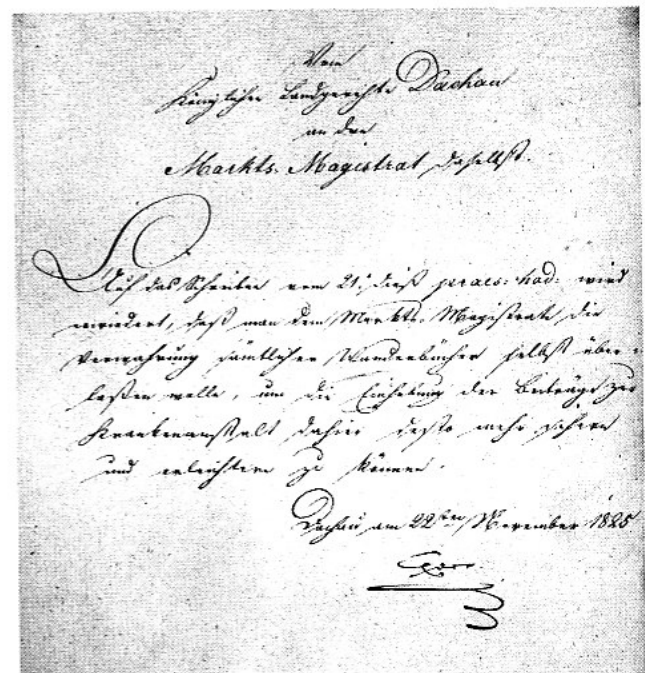 Vom
Königlichen Landgerichte Dachau
an den
Markts-Magistrat daselbst.
Auf das Schreiben vom 21t. dieß praes: hod: wird
erwiedert, daß man dem Markts-Magistrate die
Verwahrung sämtlicher Wanderbücher selbst über-
laßen wolle, um die Einhebung der Beiträge zur
Krankenanstalt dahier desto mehr sichern
und erleichtern zu können.
Dachau am 22ten November 1825